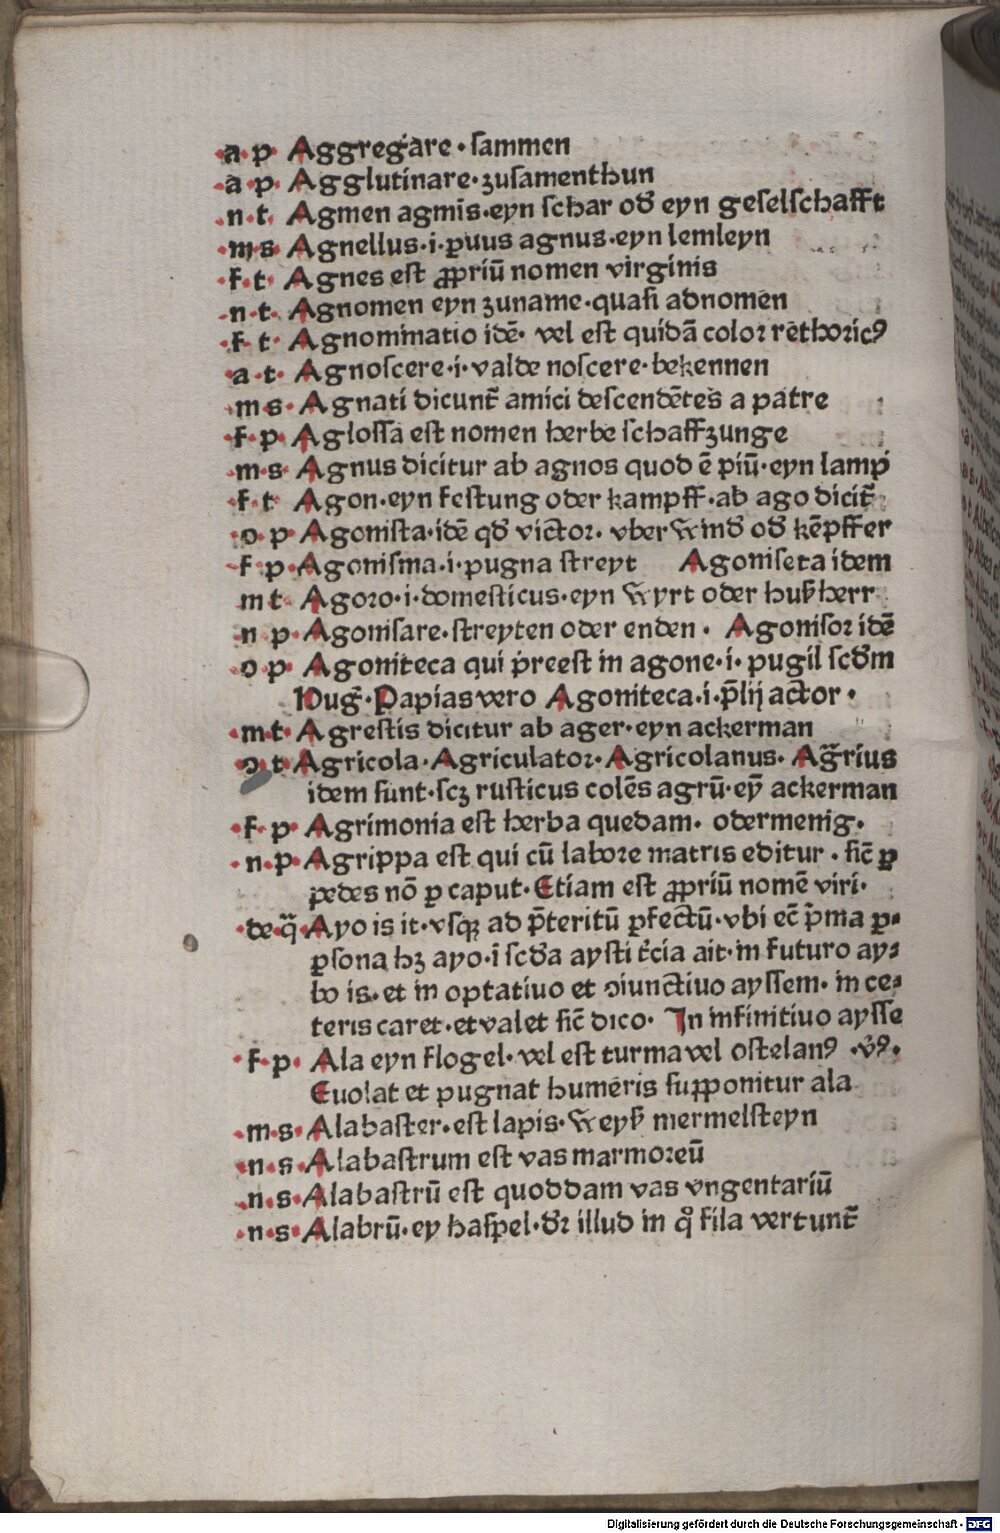 ·a·p· Aggregare · sammen
·a·p· Agglutinare·zusamenthun
·n·t· Agmen agmīs·eyn schar od̕ eyn geselschafft
·m·s· Agnellus·i·ꝑuus agnus·eyn lemleyn
·f·t· Agnes est ꝓpriū nomen virginis
·n·t· Agnomen eyn zuname·quasi adnomen
·f·t· Agnominatio idē· vel est quidā color rethoricꝰ
·a·t· Agnoscere·i·valde noscere·bekennen
·m·s· Agnati dicunt̄ amici descendētes a patre
·f·p· Aglossa est nomen herbe schaffzunge
·m·s· Agnus dicitur ab agnos quod ē piū·eyn lamp
·f·t· Agon·eyn festung oder kampff·ab ago dicit̄
·o·p· Agonista·idē qd̕ victor· vber wind̕ od̕ kēpffer
·f·p· Agonisma·i·pugna streyt Agoniseta idem
m t· Agoro·i·domesticus·eyn wyrt oder hußherr
·n·p· Agonisare·streyten oder enden· Agonisor idē
·o·p· Agoniteca qui preest in agone·i·pugil scd̕m
Hug̕·Papias vero Agoniteca·i·p̄lij actor·
·m·t· Agrestis dicitur ab ager·eyn ackerman
·o·t· Agricola·Agriculator·Agricolanus·Ag̃rius
idem sunt·scꝫ rusticus colēs agrū·ey̅ ackerman
·f·p· Agrimonia est herba quedam· odermenig·
·n·p· Agrippa est qui cū labore matris editur·sic̄ ꝑ
pedes nō ꝑ caput·Etiam est ꝓpriū nomē viri·
·de·q̄· Ayo is it·vsqꝫ ad p̄teritū ꝑfectū·vbi ec̄ p̄ma ꝑ-
ꝑsona hꝫ ayo·ī scd̕a aysti t̕cia ait·in futuro ay-
bo is·et in optatiuo et ꝯiunctiuo ayssem· in ce-
teris caret·et valet sic̄ dico· In infinitiuo aysse
·f·p· Ala eyn flogel·vel est turma vel ostelanꝰ ·v̕ꝰ·
Euolat et pugnat humeris supponitur ala
·m·s· Alabaster·est lapis·weyß mermelsteyn
·n·s· Alabastrum est vas marmoreū
·n·s· Alabastrū est quoddam vas vngentariū
·n·s· Alabrū·ey haspel·d̕r illud in qͦ fila vertunt̄
Digitalisierung gefördert durch die Deutsche Forschungsgemeinschaft - DFG